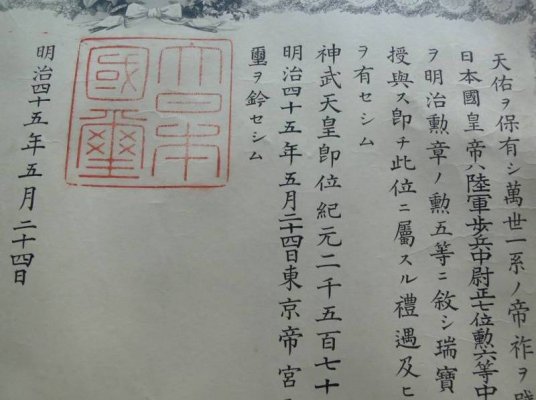 天佑ヲ保有シ萬世一系ノ帝祚ヲ
日本國皇帝ハ陸軍歩兵中尉正七位勲六等中
ヲ明治勲章ノ勲五等ニ敘シ瑞寶
授與ス即チ此位ニ屬スル禮遇及ヒ
ヲ有セシム
神武天皇即位紀元二千五百七十
明治四十五年五月二十四日東京帝宮
璽ヲ鈐セシム
大日本
國璽
明治四十五年五月二十四日